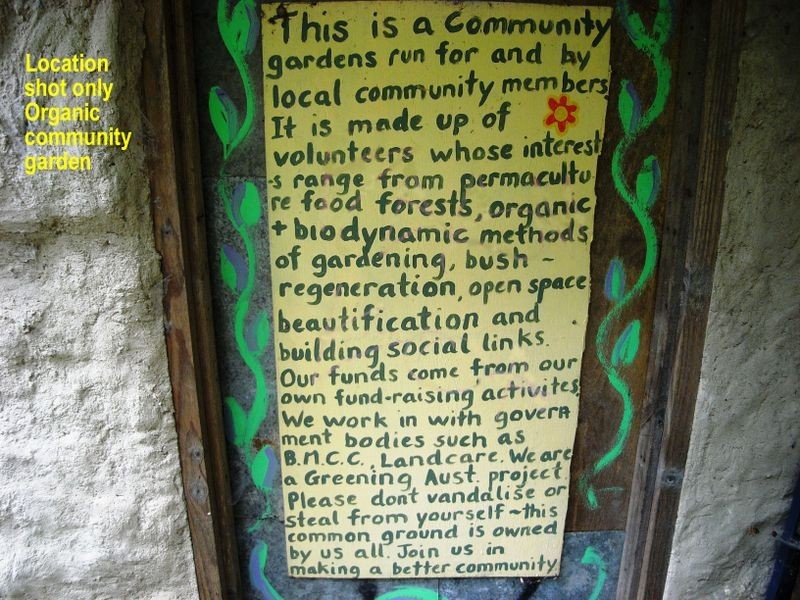 Location
shot only
Organic
community
garden
This is a Community
gardens run for and by
local community members.
It is made up of
volunteers whose interest
s range from permacultu
re food forests, organic
+ biodynamic methods
of gardening, bush ~
regeneration, open space
beautification and
building social links.
Our funds come from our
own fund-raising activites.
We work in with govern
ment bodies such as
B.M.C.C., Landcare. We are
a Greening Aust. project
Please dont vandalise or
steal from yourself ~ this
common ground is owned
by us all. Join us in
making a better community